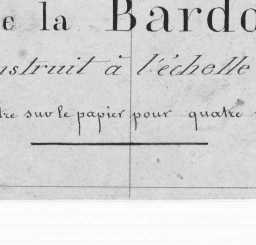 e la Bardo
nstruit à l'échelle
tre sur le papier pour quatre